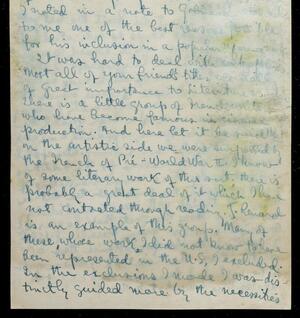 I noted in a note to
to me one of the best
for his inclusion in a
It was hard to deal with
most all of your friends
of great importance to
There is a little group of
who have become famous in
production. And here let it be
on the artistic side we were
the French of Pré-World War I know
of some literary work of this sort. there is
probably a great deal of it which I have
not contacted through reading. J. Renard
is an example of this group. Many of
these whose work I did not know to have
been represented in the U.S, I excluded.
In the exclusions I made I was dis-
tinctly guided more by the necessities